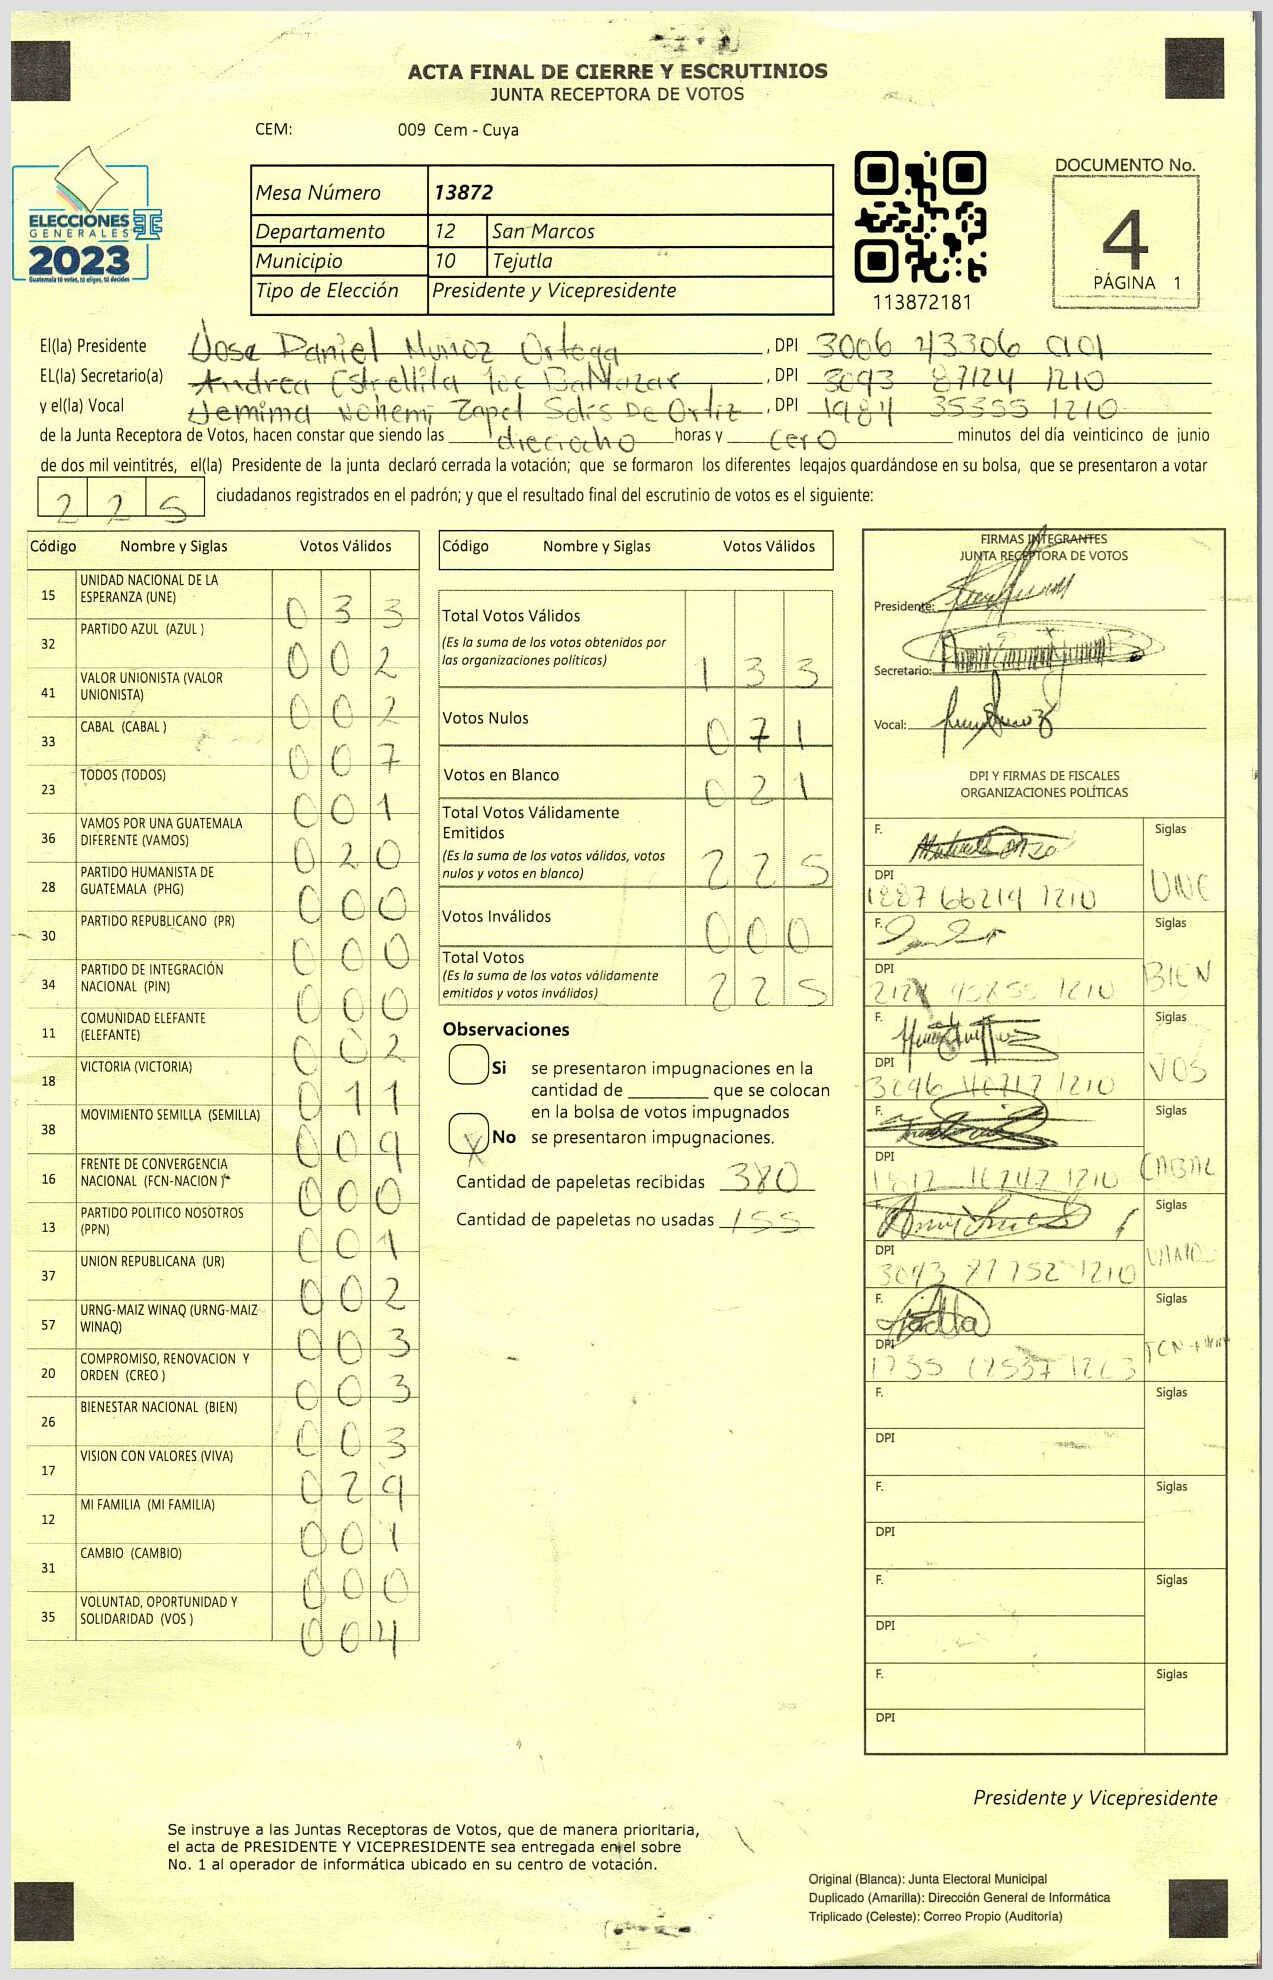 ACTA FINAL DE CIERRE Y ESCRUTINIOS
JUNTA RECEPTORA DE VOTOS
CEM: 009 Cem - Cuya
ELECCIONES
GENERALES
2023
Guatemala tú votas, tú eliges, tú decides
Mesa Número 13872
Departamento 12 San Marcos
Municipio 10 Tejutla
Tipo de Elección Presidente y Vicepresidente
113872181
DOCUMENTO No.
4
PÁGINA 1
El(la) Presidente Jose Daniel Muñoz Ortega, DPI 3006 43306 0101
EL(la) Secretario(a) Andrea Estrellita Toc Baltazar, DPI 3093 87124 1210
y el(la) Vocal Jemima Nohemi Zapet Solis De Ortiz, DPI 1984 35555 1210
de la Junta Receptora de Votos, hacen constar que siendo las dieciocho horas y cero minutos del día veinticinco de junio
de dos mil veintitrés, el(la) Presidente de la junta declaró cerrada la votación; que se formaron los diferentes legajos quardándose en su bolsa, que se presentaron a votar
225 ciudadanos registrados en el padrón; y que el resultado final del escrutinio de votos es el siguiente:
Código Nombre y Siglas Votos Válidos
15 UNIDAD NACIONAL DE LA ESPERANZA (UNE) 033
32 PARTIDO AZUL (AZUL ) 002
41 VALOR UNIONISTA (VALOR UNIONISTA) 002
33 CABAL (CABAL ) 007
23 TODOS (TODOS) 001
36 VAMOS POR UNA GUATEMALA DIFERENTE (VAMOS) 020
28 PARTIDO HUMANISTA DE GUATEMALA (PHG) 000
30 PARTIDO REPUBLICANO (PR) 000
34 PARTIDO DE INTEGRACIÓN NACIONAL (PIN) 000
11 COMUNIDAD ELEFANTE (ELEFANTE) 002
18 VICTORIA (VICTORIA) 011
38 MOVIMIENTO SEMILLA (SEMILLA) 009
16 FRENTE DE CONVERGENCIA NACIONAL (FCN-NACION ) 000
13 PARTIDO POLITICO NOSOTROS (PPN) 001
37 UNION REPUBLICANA (UR) 002
57 URNG-MAIZ WINAQ (URNG-MAIZ WINAQ) 003
20 COMPROMISO, RENOVACION Y ORDEN (CREO ) 003
26 BIENESTAR NACIONAL (BIEN) 003
17 VISION CON VALORES (VIVA) 029
12 MI FAMILIA (MI FAMILIA) 001
31 CAMBIO (CAMBIO) 000
35 VOLUNTAD, OPORTUNIDAD Y SOLIDARIDAD (VOS ) 004
Código Nombre y Siglas Votos Válidos
Total Votos Válidos 133
(Es la suma de los votos obtenidos por
las organizaciones políticas)
Votos Nulos 071
Votos en Blanco 021
Total Votos Válidamente
Emitidos 225
(Es la suma de los votos válidos, votos
nulos y votos en blanco)
Votos Inválidos 000
Total Votos 225
(Es la suma de los votos válidamente
emitidos y votos inválidos)
Observaciones
Si se presentaron impugnaciones en la
cantidad de ________ que se colocan
en la bolsa de votos impugnados
X No se presentaron impugnaciones.
Cantidad de papeletas recibidas 380
Cantidad de papeletas no usadas 155
FIRMAS INTEGRANTES
JUNTA RECEPTORA DE VOTOS
Presidente:
Secretario:
Vocal:
DPI Y FIRMAS DE FISCALES
ORGANIZACIONES POLÍTICAS
F. Siglas
DPI 1887 66219 1210 UNE
F. Siglas
DPI 1210 BIEN
F. Siglas
DPI 3096 1210 VOS
F. Siglas
DPI 1210 CABAL
F. Siglas
DPI 3093 1210
F. Siglas
DPI
F. Siglas
DPI
F. Siglas
DPI
F. Siglas
DPI
F. Siglas
DPI
Presidente y Vicepresidente
Se instruye a las Juntas Receptoras de Votos, que de manera prioritaria,
el acta de PRESIDENTE Y VICEPRESIDENTE sea entregada en el sobre
No. 1 al operador de informática ubicado en su centro de votación.
Original (Blanca): Junta Electoral Municipal
Duplicado (Amarilla): Dirección General de Informática
Triplicado (Celeste): Correo Propio (Auditoría)